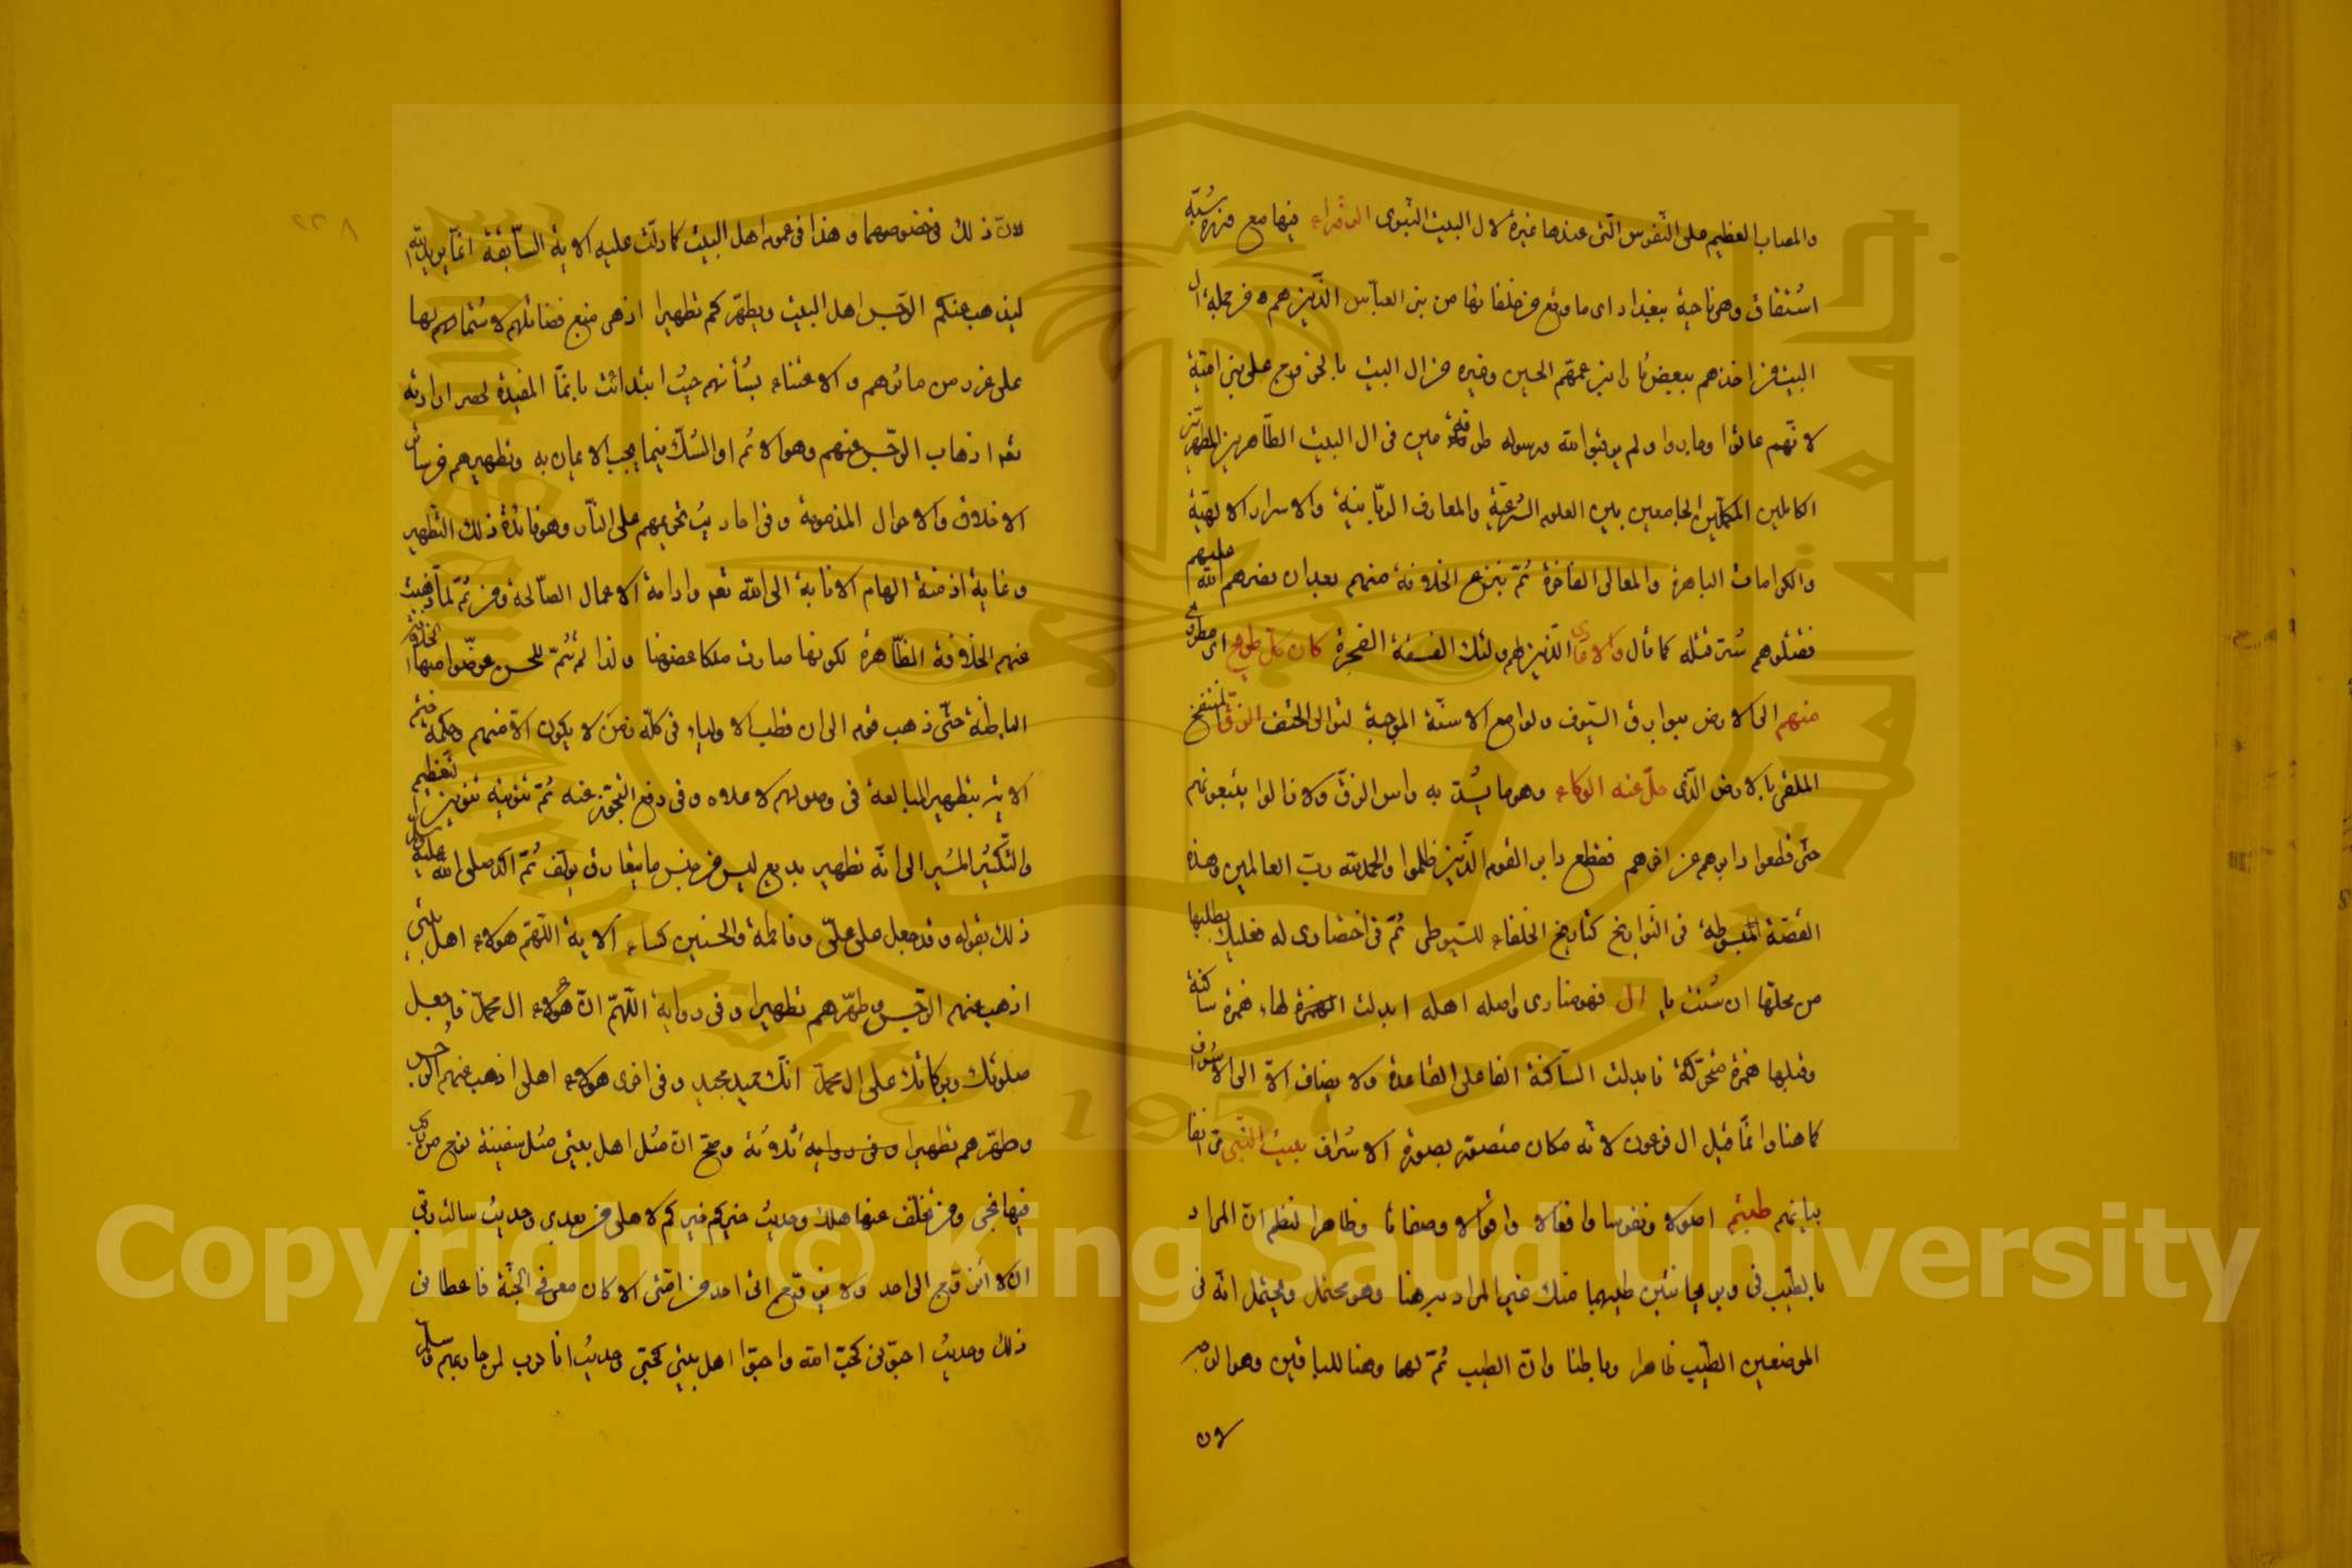 والمصاب العظيم على النفوس التى عندها غيرة لال البيت النبوى الزوراء فيها مع
وهى ناحية ببغداد اى ما وقع من خلفائها من بنى العباس الذين هم من جملة ال
البيت من اخذهم ببعض ثارا بن عمهم الحسين وغيره من ال البيت بالخروج على بنى امية
لانهم عاثوا وما بدوا ولم يرقبوا الله ورسوله فى ال البيت الطاهرين المطهرين
الكاملين المكملين الجامعين بين العلوم الشرعية والمعارف الربانية والاسرار الالهية
والكرامات الباهرة والمعالى الفاخرة ثم بنزع الخلافة منهم بعد ان نصرهم الله عليهم
فقتلوهم شر قتله كما قال والاعادى الذين هم اولئك الفسقة الفجرة كان كل طريح اى مطروح
منهم الى الارض ببوارق السيوف ولوامع الاسنة الموجبة لتوالى الحتف الزق المنتفخ
الملقى بالارض الذى حل عنه الوكاء وهو ما يشد به راس الزق ولا زالوا يتبعونهم
حتى قطعوا دابرهم عن اخرهم فقطع دابر القوم الذين ظلموا والحمد لله رب العالمين وهذه
القصة المبسوطة فى التواريخ كتاريخ الخلفاء للسيوطى ثم فى اختصارى له فعليك بطلبها
من محلها ان شئت يا ال فهو منادى واصله اهله ابدلت الهمزة لهاء همزة ساكنة
وقبلها همزة متحركة فابدلت الساكنة الفا على القاعدة ولا يضاف الا الى الاشراف
كما هنا وانما قيل ال فرعون لانه مكان متصور بصورة الاشراف بيت النبى مر انفا
بيانهم طبتم اصولا ونفوسا وافعالا واقوالا وصفاتا وظاهرا لنظم ان المراد
بالطيب فى وبريحانتين طيبهما منك غير المراد به هنا وهو محتمل ويحتمل انه فى
الموضعين الطيب ظاهرا وباطنا وان الطيب ثم لهما وهنا للباقين وهو الاوجه
لان
لان ذلك فى خصوصهما وهذا فى عموم اهل البيت كما دلت عليه الاية السابقة انما يريد الله
ليذهب عنكم الرجس اهل البيت ويطهركم تطهيرا اذ هى منبع فضائلهم لاشتمالها
على غرر من ماثرهم والاعتناء بشأنهم حيث ابتدائت بانما المفيدة لحصر ارادته
تعالى اذهاب الرجس عنهم وهو الاثم او الشك فيما يجب الايمان به وتطهيرهم من سائر
الاخلاق والاحوال المذمومة وفى احاديث تحريمهم على النار وهو فائدة ذلك التطهير
وغايته اذ منه الهام الانابة الى الله تعالى وادامة الاعمال الصالحة ومن ثم لما ذهبت
عنهم الخلافة الظاهرة لكونها صارت ملكا عضوضا ولذا لم تتم للحسن عوضوا عنها الخلافة
الباطنة حتى ذهب قوم الى ان قطب الاولياء فى كل زمن لا يكون الا منهم وحكمة ختم
الاية بتطهير المبالغة فى وصولهم لاعلاه وفى رفع التجوز عنه ثم تنوينه تنوين التعظيم
والتكثير المشير الى انه تطهير بديع ليس من جنس ما يتعارف يؤلف ثم اكد صلى الله عليه وسلم
ذلك بقوله وقد جعل على على وفاطمة والحسنين كساء الاية اللهم هولاء اهل بيتى
اذهب عنهم الرجس وطهرهم تطهيرا وفى رواية اللهم ان هولاء ال محمد فاجعل
صلوتك وبركاتك على ال محمد انك حميد مجيد وفى اخرى هولاء اهلى اذهب عنهم الرجس
وطهرهم تطهيرا وفى رواية ثلاثة وصح ان مثل اهل بيتى مثل سفينة نوح من ركب
فيها نجى ومن تخلف عنها هلك وحديث خيركم خيركم لاهلى من بعدى وحديث سالت ربى
ان لا اتزوج الى احد ولا يتزوج الى احد من امتى الا كان معى فى الجنة فاعطانى
ذلك وحديث احبونى لحب الله واحبوا اهل بيتى لحبى وحديث انا حرب لمن حاربهم وسلم
Copyright © King Saud University
1957